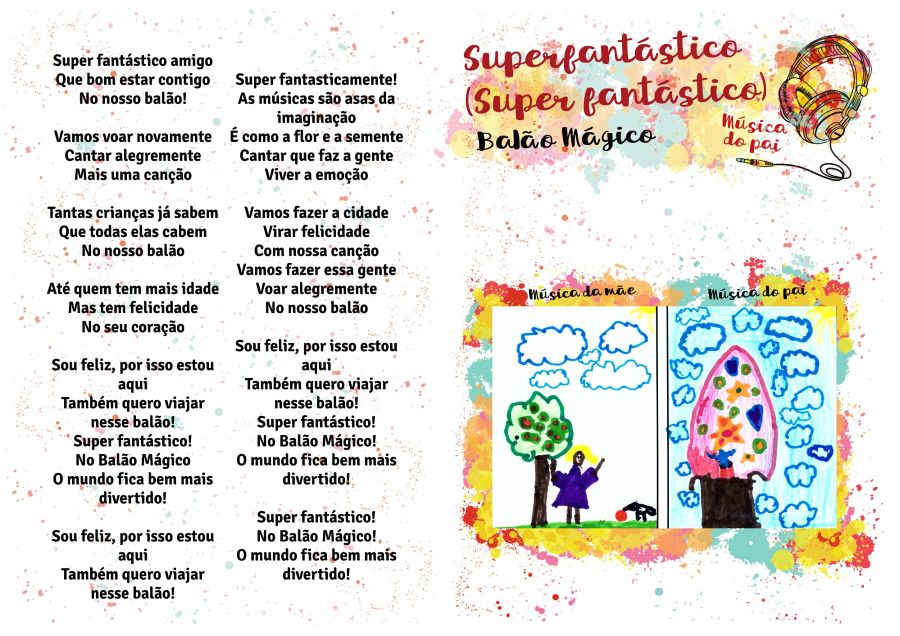 Super fantástico amigo
Que bom estar contigo
No nosso balão!
Vamos voar novamente
Cantar alegremente
Mais uma canção
Tantas crianças já sabem
Que todas elas cabem
No nosso balão
Até quem tem mais idade
Mas tem felicidade
No seu coração
Sou feliz, por isso estou
aqui
Também quero viajar
nesse balão!
Super fantástico!
No Balão Mágico
O mundo fica bem mais
divertido!
Sou feliz, por isso estou
aqui
Também quero viajar
nesse balão!
Super fantasticamente!
As músicas são asas da
imaginação
É como a flor e a semente
Cantar que faz a gente
Viver a emoção
Vamos fazer a cidade
Virar felicidade
Com nossa canção
Vamos fazer essa gente
Voar alegremente
No nosso balão
Sou feliz, por isso estou
aqui
Também quero viajar
nesse balão!
Super fantástico!
No Balão Mágico!
O mundo fica bem mais
divertido!
Super fantástico!
No Balão Mágico!
O mundo fica bem mais
divertido!
Superfantástico
(Super fantástico)
Balão Mágico
Música
do pai
Música da mãe
Música do pai